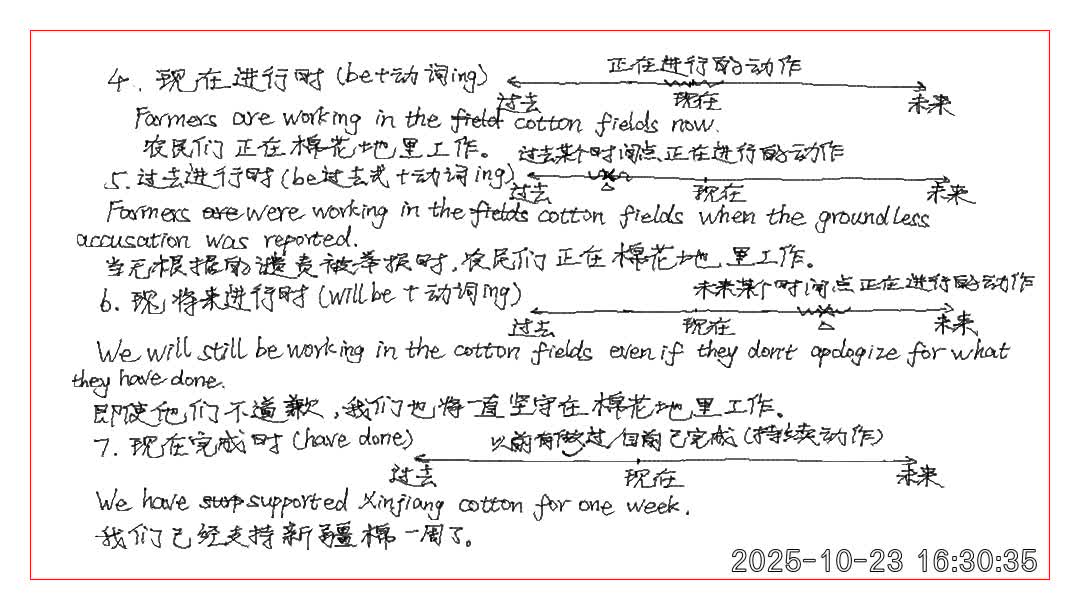 4. 现在进行时 (be+动词ing)
正在进行的动作
过去 现在 未来
Farmers are working in the field cotton fields now.
农民们正在棉花地里工作。
过去某个时间点正在进行的动作
5. 过去进行时 (be过去式+动词ing)
过去 现在 未来
Farmers are were working in the fields cotton fields when the groundless
accusation was reported.
当无根据的谴责被举报时,农民们正在棉花地里工作。
6. 现将来进行时 (will be + 动词ing)
未来某个时间点正在进行的动作
过去 现在 未来
We will still be working in the cotton fields even if they don't apologize for what
they have done.
即使他们不道歉,我们也将一直坚守在棉花地里工作。
7. 现在完成时 (have done)
以前有做过/目前已完成(持续动作)
过去 现在 未来
We have supported Xinjiang cotton for one week.
我们已经支持新疆棉一周了。
2025-10-23 16:30:35